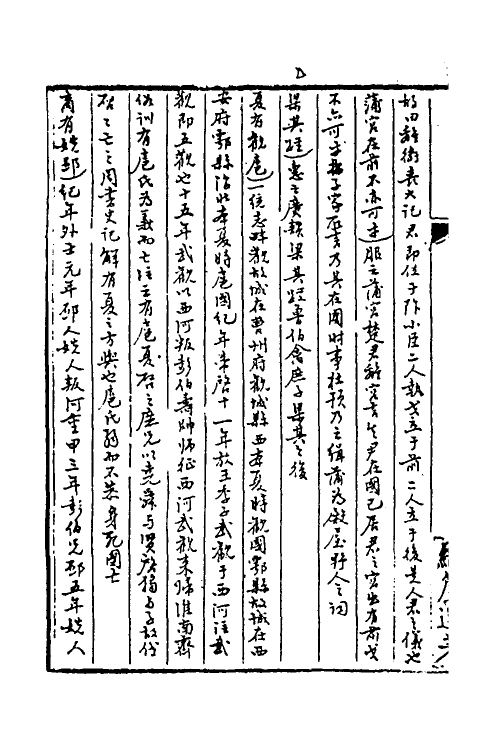 如田辭衛表大記君即位于阼小臣二人執戈立于前二人立于後是人君之儀也
蒲宮在前不亦可乎服云蒲宮楚君離宮言令尹在國已居君之宮出有前戈
不亦可乎楊子家所言乃其在國時事杜預乃云緝蒲為殿屋野人之詞
梁其踁惠云廣韻梁其踁魯伯禽庶子梁其之後
夏有觀扈一統志畔觀故城在曹州府觀城縣西本夏時觀國鄠縣故城在西
安府鄠縣治北本夏時扈國紀年帝啟十一年放王季子武觀于西河注武
觀即五觀也十五年武觀以西河叛彭伯壽帥師征西河武觀來歸淮南齊
俗訓有扈氏為義而亡注云有扈夏啟之庶兄以堯舜與賢啟獨與子故伐
啟啟亡之周書史記解有夏之方興也扈氏弱而不恭身死國亡
商有姺邳紀年外壬元年邳人姺人叛河亶甲三年彭伯克邳五年姺人